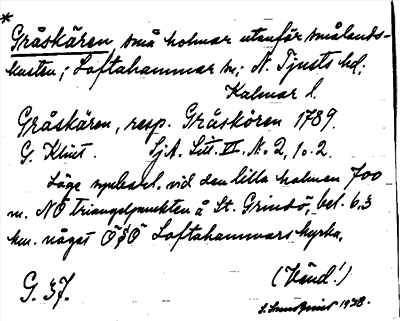 *
Gråskären små holmar utanför smålands-
kusten; Loftahammar sn; N. Tjusts hd;
Kalmar l.
Gråskären, resp. Gråskören 1789.
G. Klint. SjA. Litt. VI. N. 2, 1o. 2.
Läge synbarl. vid den lilla holmen 700
m. NO triangelpunkten å St. Grindö, bel. 6.3
km. något O§O Loftahammars kyrka.
G. 37. (Vänd!)
1938.